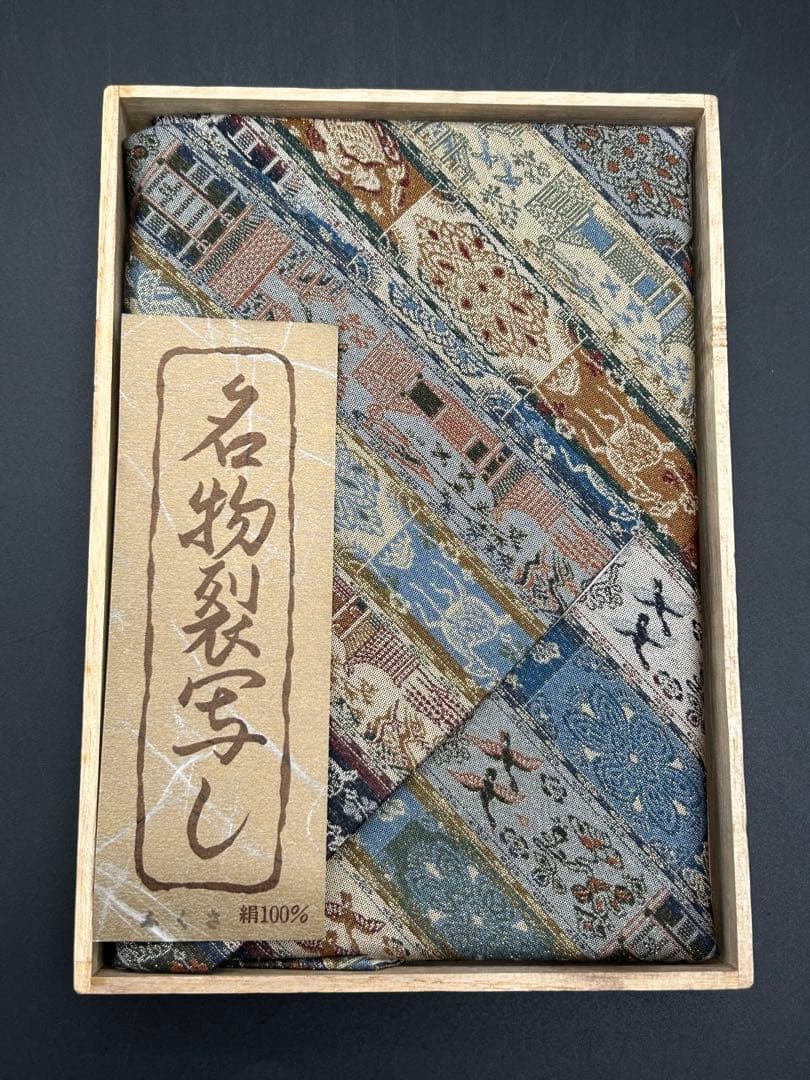 名物裂写し
みくさ 絹100%